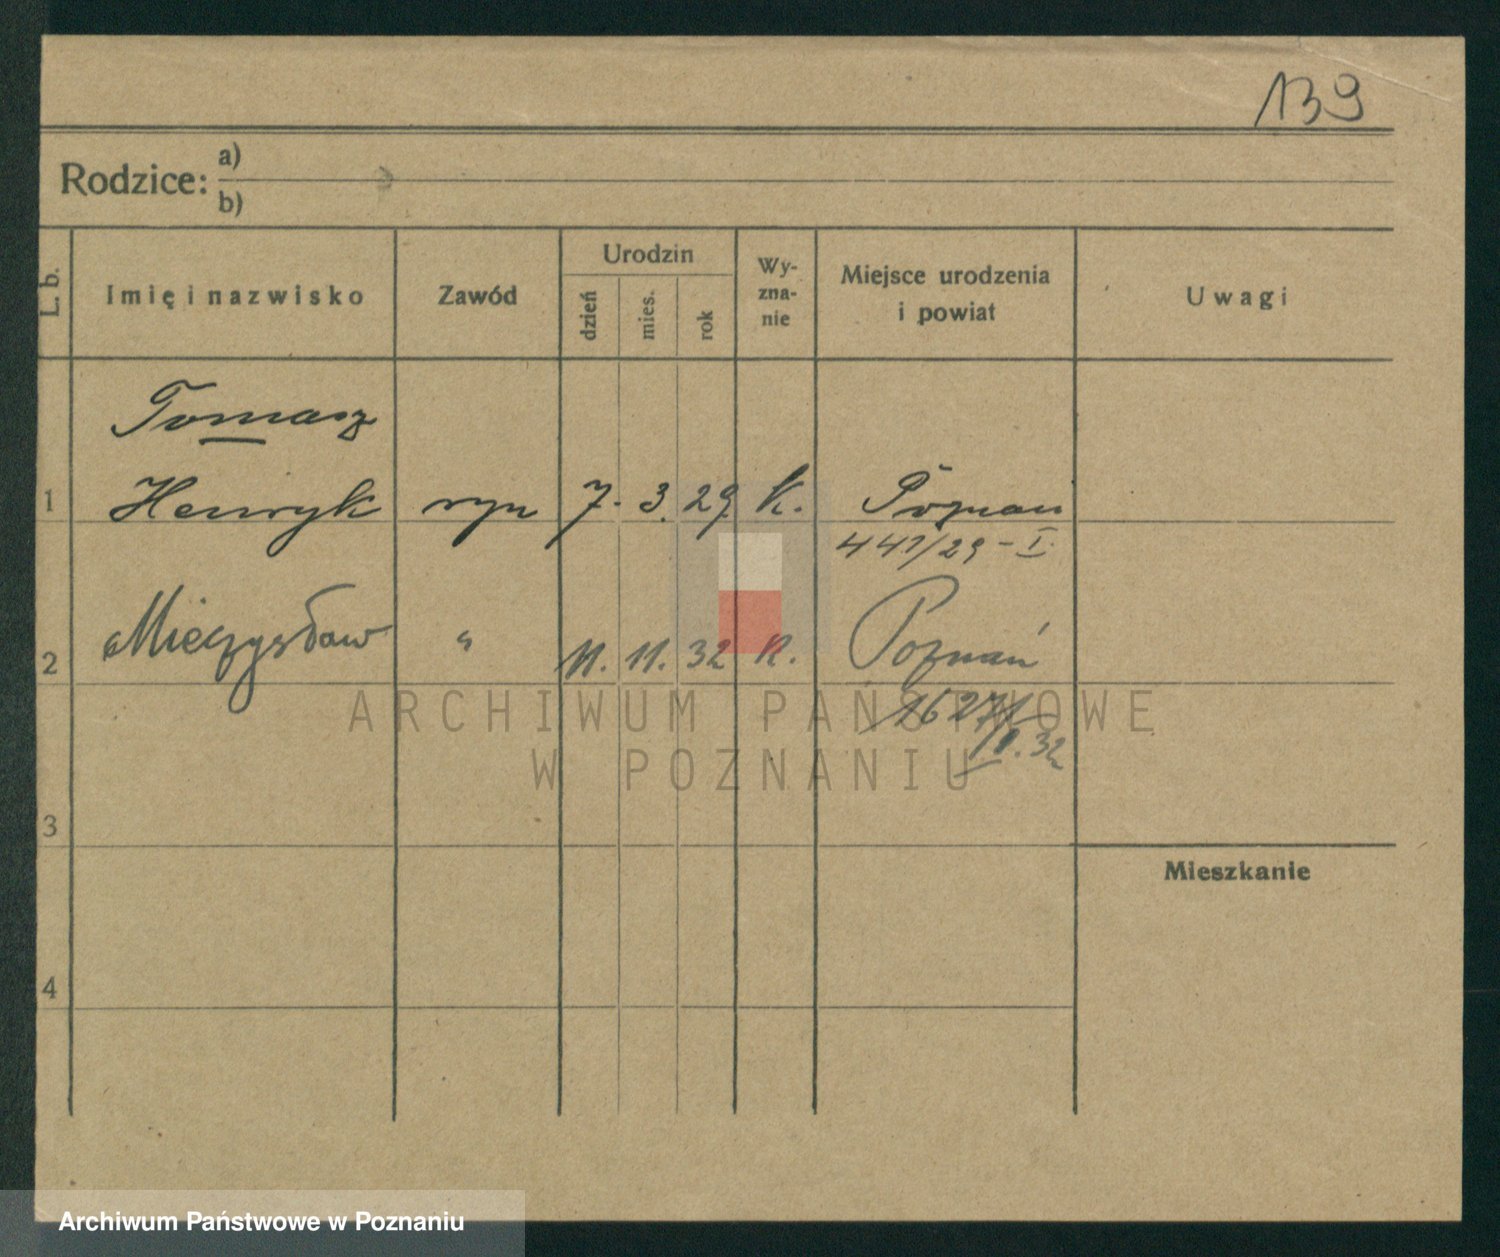 139
Rodzice:
a)
b)
L. b.
Imię i nazwisko
Zawód
Urodzin
dzień
mies.
rok
Wy-
zna-
nie
Miejsce urodzenia
i powiat
Uwagi
Tomasz
1 Henryk syn 7. 3. 29. K. Poznań
441/29-I.
2 Mieczysław " 11. 11. 32 K. Poznań
1627/
II. 32
3
Mieszkanie
4
ARCHIWUM PAŃSTWOWE
W POZNANIU
Archiwum Państwowe w Poznaniu